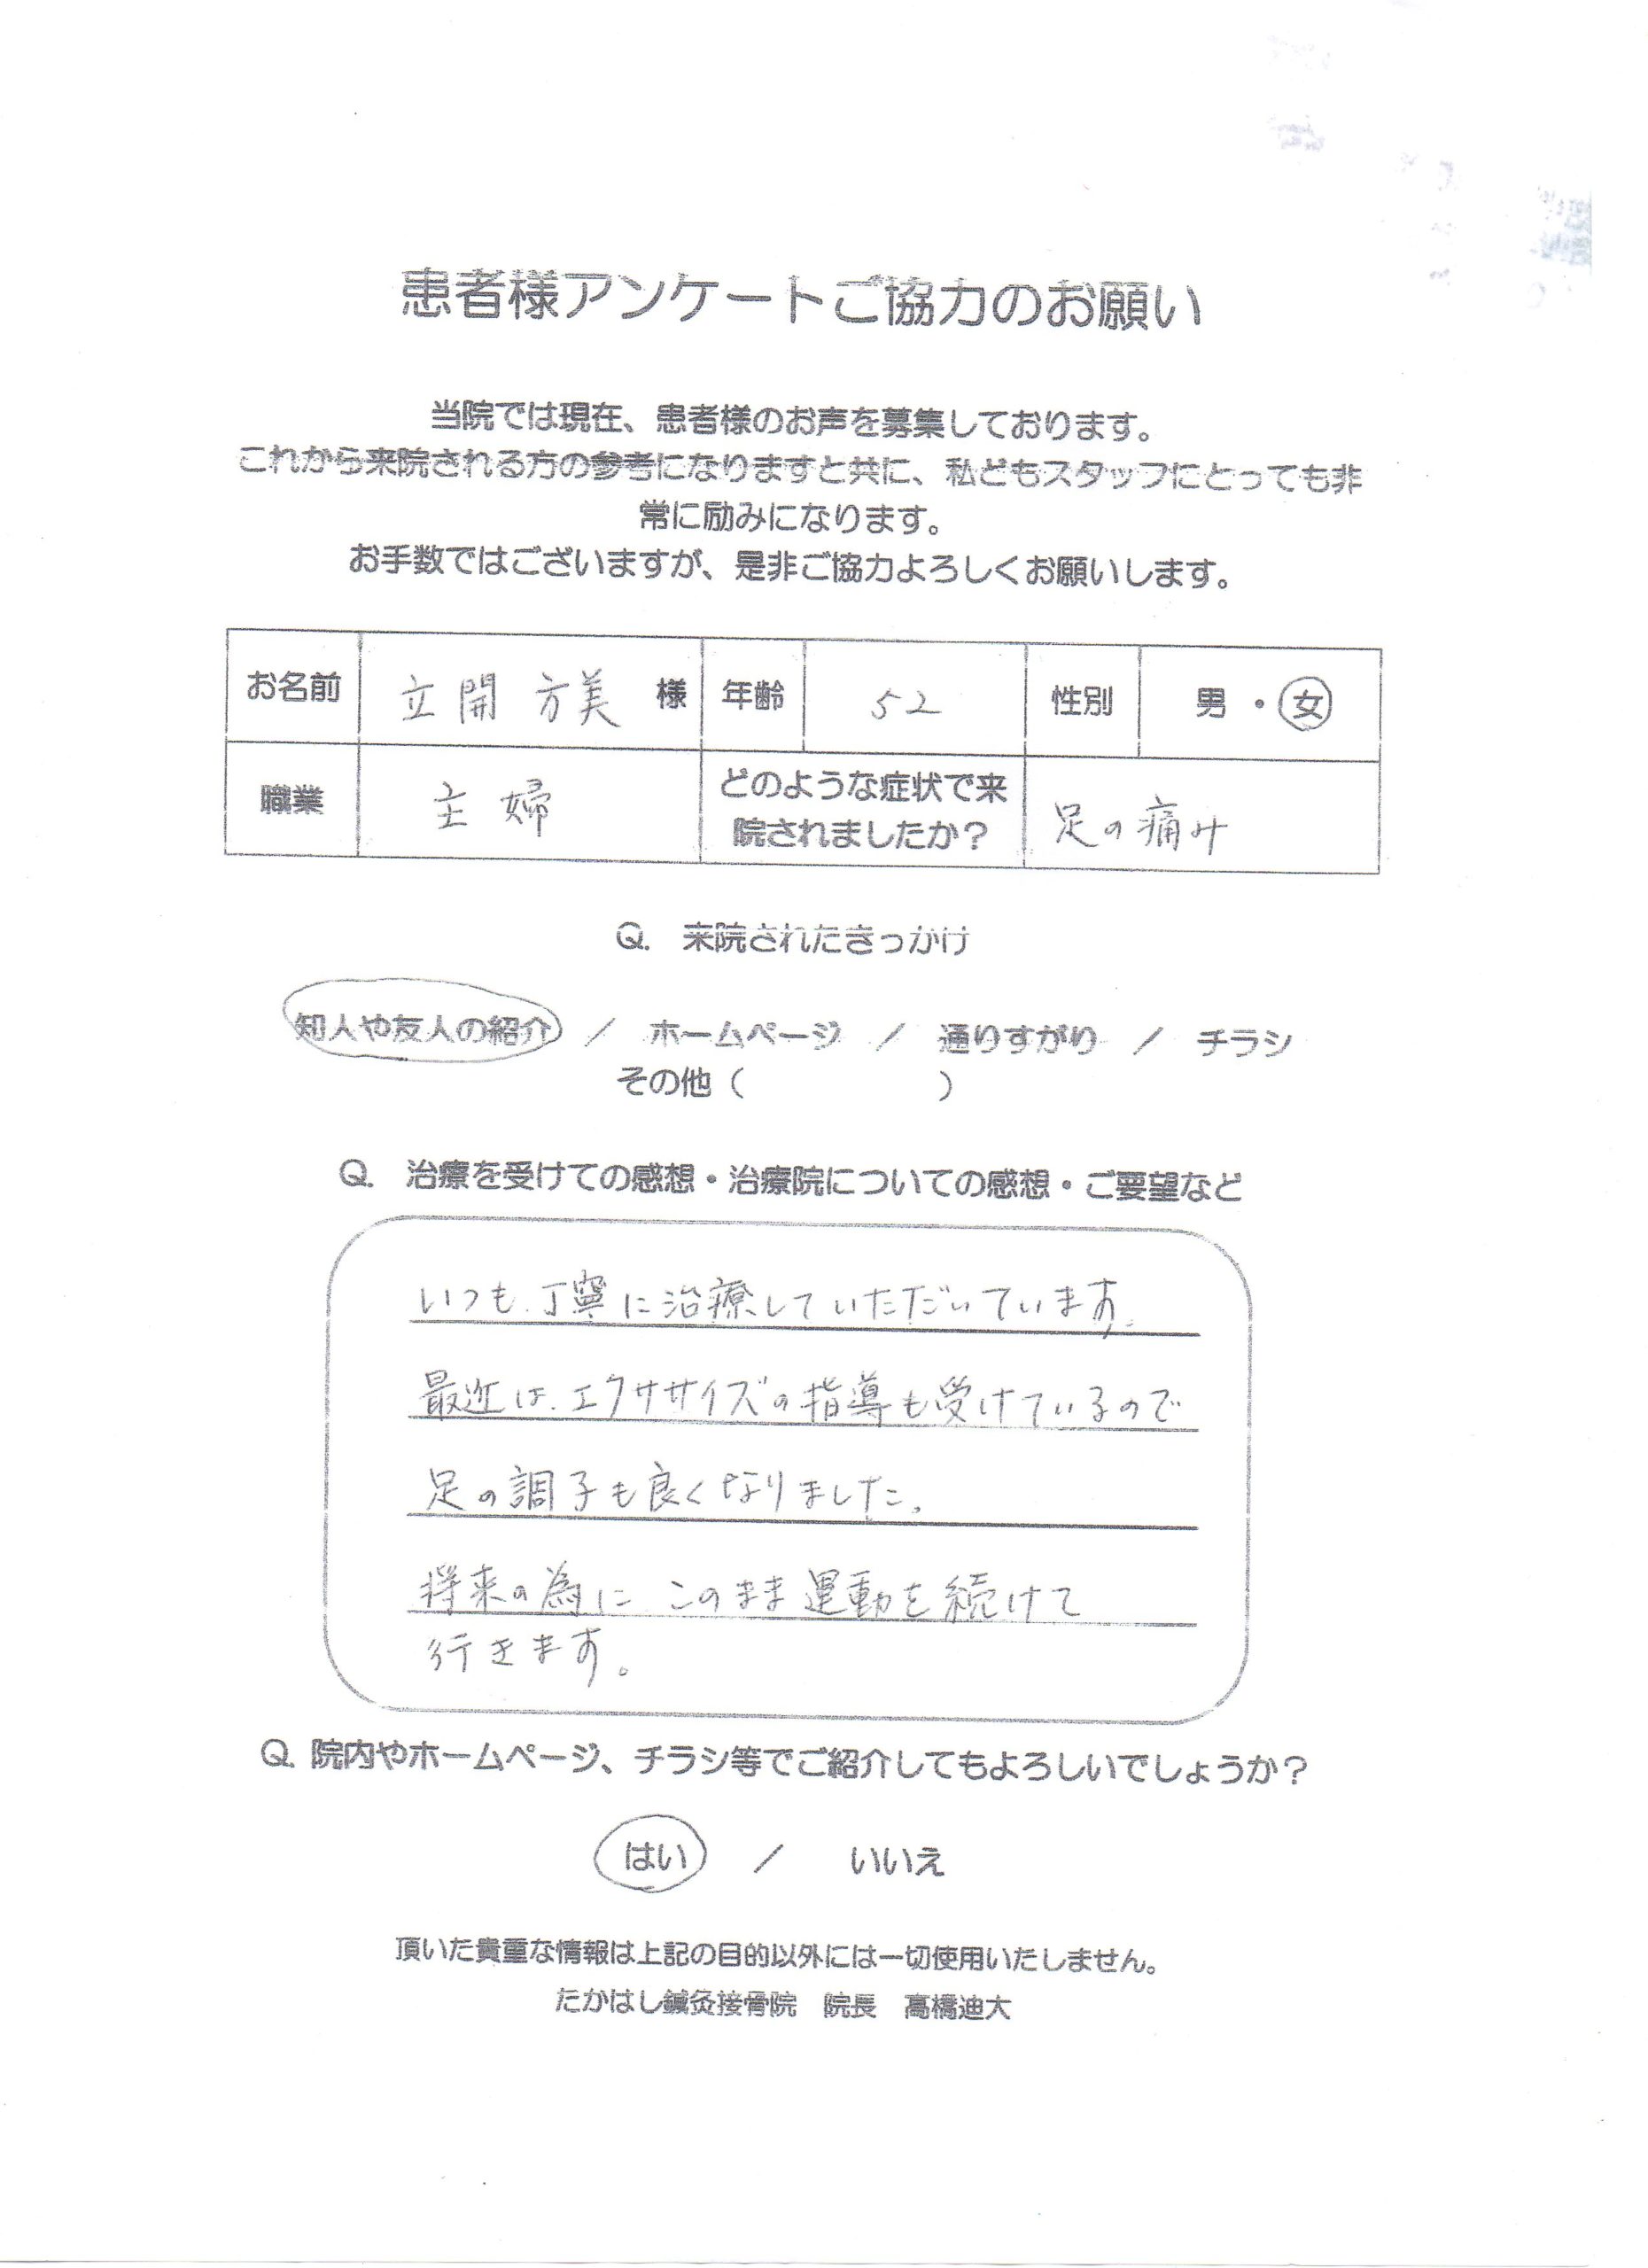 患者様アンケートご協力のお願い
当院では現在、患者様のお声を募集しております。
これから来院される方の参考になりますと共に、私どもスタッフにとっても非
常に励みになります。
お手数ではございますが、是非ご協力よろしくお願いします。
お名前 立開 方美 様 年齢 52 性別 男 ・ 女
職業 主婦 どのような症状で来院されましたか? 足の痛み
Q. 来院されたきっかけ
知人や友人の紹介 / ホームページ / 通りすがり / チラシ
その他( )
Q. 治療を受けての感想・治療院についての感想・ご要望など
いつも、丁寧に治療していただいています。
最近は、エクササイズの指導も受けているので
足の調子も良くなりました。
将来の為に、このまま運動を続けて
行きます。
Q. 院内やホームページ、チラシ等でご紹介してもよろしいでしょうか?
はい / いいえ
頂いた貴重な情報は上記の目的以外には一切使用いたしません。
たかはし鍼灸接骨院 院長 高橋迪大